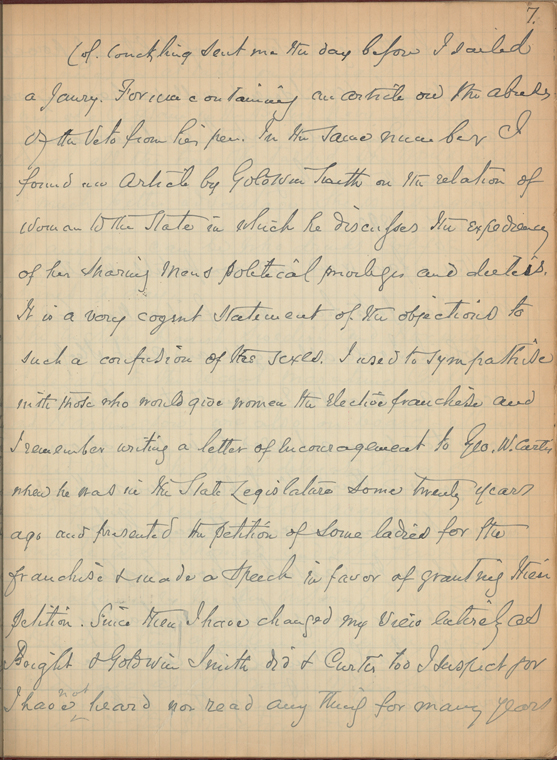 7.
Col. Conckling sent me the day before I sailed
a Janry. Forum containing an article on the abuses
of the Veto from his pen. In the same number I
found an Article by Goldwin Smith on the relation of
woman to the State in which he discusses the expediency
of her sharing Mans political privileges and duties.
It is a very cogent statement of the objections to
such a confusion of the sexes. I used to sympathise
with those who would give women the elective franchise and
I remember writing a letter of encouragement to Geo. W. Curtis
when he was in the State Legislature some twenty years
ago and presented the petition of some ladies for the
franchise & made a speech in favor of granting their
petition. Since then I have changed my view entirely as
Bright & Goldwin Smith did & Curtis too I suspect for
I have not heard nor read any thing for many years